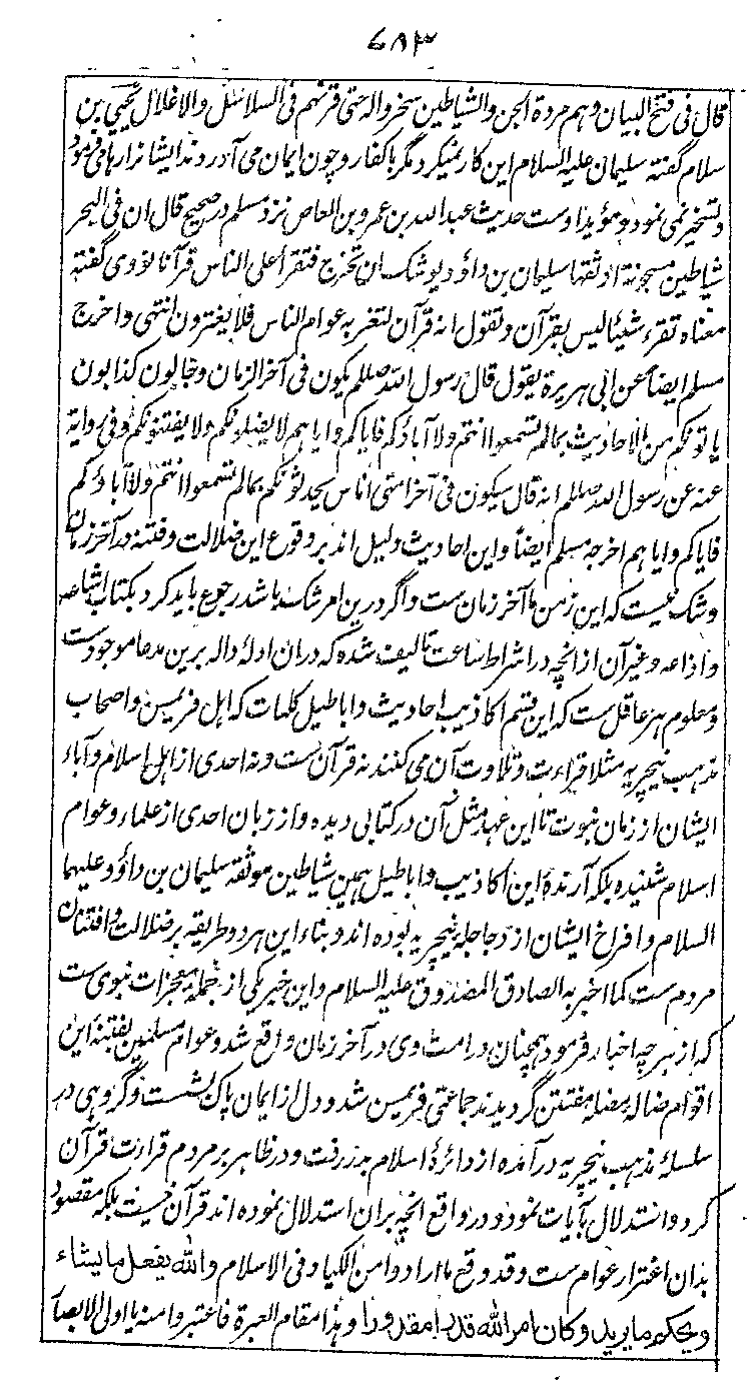 ٦٨٣
قال فی فتح البیان وهم مردة الجن والشیاطین سخروا له حتی قرنهم فی السلاسل والاغلال یحیی بن
سلام گفته سلیمان علیه السلام این کار نمیکرد مگر با کفار و چون ایمان می آوردند ایشانرا رها می فرمود
و تسخیر نمی نمود و مؤید اوست حدیث عبد الله بن عمرو بن العاص نزد مسلم در صحیح قال ان فی البحر
شیاطین مسجونة اوثقها سلیمان بن داؤد یوشک ان تخرج فتقرأ علی الناس قرآنا نووی گفته
معناه تقرء شیئا لیس بقرآن و تقول انه قرآن لتغر به عوام الناس فلا یغترون انتهی و اخرج
مسلم ایضاً عن ابی هریرة یقول قال رسول الله صللم یکون فی آخر الزمان دجالون کذابون
یاتونکم من الاحادیث بمالم تسمعوا انتم ولا آباؤکم فایاکم وایاهم لا یضلونکم ولا یفتنونکم و فی روایة
عنه عن رسول الله صللم انه قال سیکون فی آخر امتی اناس یحدثونکم بمالم تسمعوا انتم ولا آباؤکم
فایاکم وایاهم اخرجه مسلم ایضاً و این احادیث دلیل اند بر وقوع این ضلالت و فتنه در آخر زمان
و شک نیست که این زمن ما آخر زمان ست و اگر درین امر شک باشد رجوع باید کرد بکتاب اشاعه
و اذاعه و غیر آن از انچه در اشراط ساعت تالیف شده که دران ادلهٔ داله برین مدعا موجودست
و معلوم هر عاقل ست که این قسم اکاذیب احادیث و اباطیل کلمات که اهل فریمیسن و اصحاب
مذهب نیچریه مثلا قراءت و تلاوت آن می کنند نه قرآن ست و نه احدی از اهل اسلام و آباء
ایشان از زمان نبوت تا این عهد مثل آن در کتابی دیده و از زبان احدی از علماء و عوام
اسلام شنیده بلکه آرندهٔ این اکاذیب و اباطیل همین شیاطین موثقه سلیمان بن داؤد علیهما
السلام و افراخ ایشان از دجاجلهٔ نیچریه بوده اند و بناء این هر دو طریقه بر ضلالت و افتتان
مردم ست کما اخبر به الصادق المصدوق علیه السلام و این خبر یکی از جمله معجزات نبوی ست
که از هر چه اخبار فرمود همچنان در امت وی در آخر زمان واقع شد و عوام مسلمین بفتنهٔ این
اقوام ضاله مضله مفتتن گردیدند جماعتی فریمسن شد و دل از ایمان پاک بشست و گروهی در
سلسلهٔ مذهب نیچریه در آمده از دائرهٔ اسلام بدر رفت و در ظاهر بر مردم قراءت قرآن
کرد و استدلال بآیات نمود و در واقع انچه بران استدلال نموده اند قرآن نیست بلکه مقصود
بدان اغترار عوام ست و قد وقع ما ارادوا من الکیاد فی الاسلام والله یفعل ما یشاء
ویحکم ما یرید وکان امر الله قدرا مقدورا وهذا مقام العبرة فاعتبروا منه یا اولی الابصار